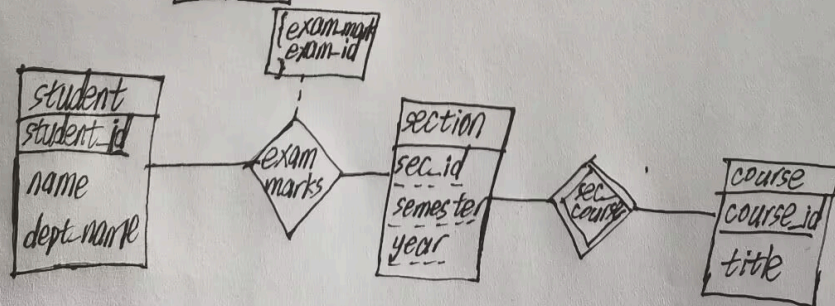 {exam_mark
exam_id
}
student
student_id
name
dept_name
exam
marks
section
sec_id
semester
year
sec
course
course
course_id
title